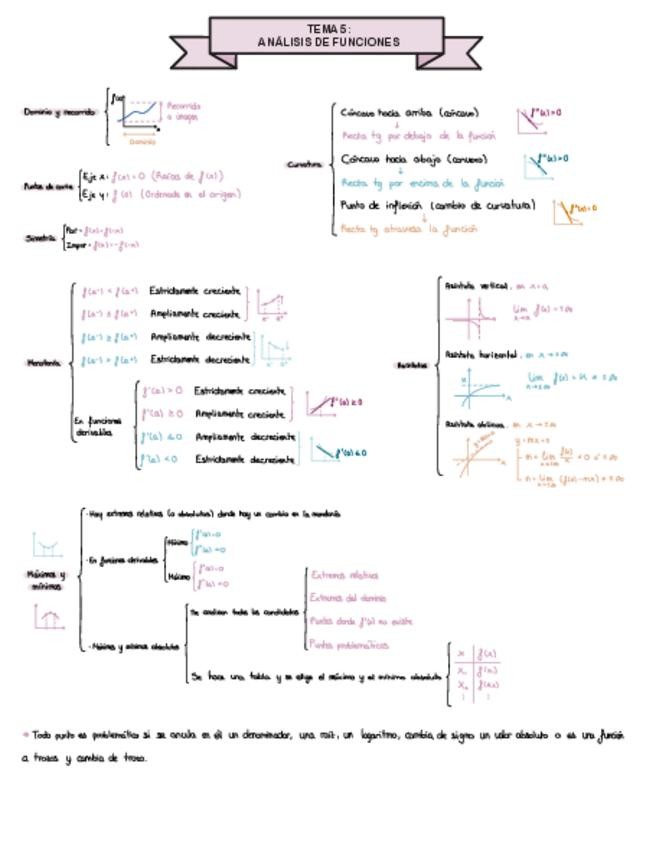 TEMA 5:
ANÁLISIS DE FUNCIONES
Dominio y recorrido
Recorrido
o imagen
Dominio
Puntos de corte
Eje x: f(x)=0 (Raíces de f(x))
Eje y: f(0) (Ordenada en el origen)
Simetría
Par = f(x)=f(-x)
Impar = f(x)=-f(-x)
Curvatura
Cóncavo hacia arriba (cóncavo)
Recta tg por debajo de la función
Cóncavo hacia abajo (convexo)
Recta tg por encima de la función
Punto de inflexión (cambio de curvatura)
Recta tg atraviesa la función
Monotonía
f(a⁻) < f(a⁺) Estrictamente creciente
f(a⁻) ≤ f(a⁺) Ampliamente creciente
f(a⁻) ≥ f(a⁺) Ampliamente decreciente
f(a⁻) > f(a⁺) Estrictamente decreciente
En funciones
derivables
f'(a) > 0 Estrictamente creciente
f'(a) ≥ 0 Ampliamente creciente
f'(a) ≤ 0 Ampliamente decreciente
f'(a) < 0 Estrictamente decreciente
Asíntotas
Asíntota vertical
Asíntota horizontal
Asíntota oblicua
Máximos y
mínimos
· Hay extremos relativos (o absolutos) donde hay un cambio en la monotonía
· En funciones derivables
· Máximos y mínimos absolutos
Se analizan todos los candidatos
Extremos relativos
Extremos del dominio
Puntos donde f'(x) no existe
Puntos problemáticos
Se hace una tabla y se elige el máximo y el mínimo absoluto
x f(x)
* Todo punto es problemático si se anula en él un denominador, una raíz, un logaritmo, cambia de signo un valor absoluto o es una función
a trozos y cambia de trozo.